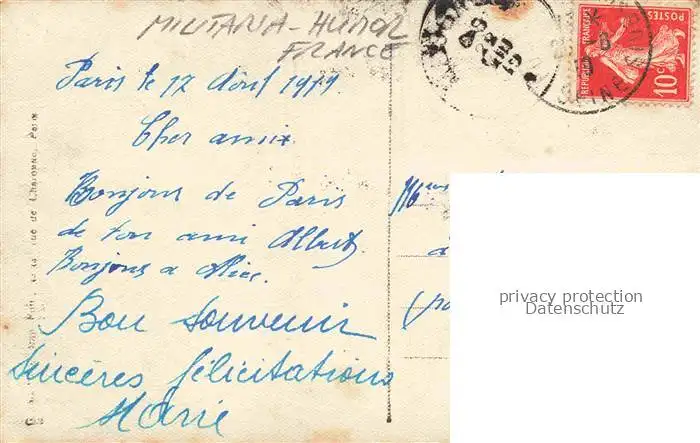 MILITARIA - HUMOR
FRANCE
Paris le 17 Avril 1911
Cher ami
Bonjour de Paris
de ton ami Albert
Bonjour a
Bon Souvenir
Sincères félicitations
Marie
rue de Charonne, Paris
POSTES
REPUBLIQUE FRANÇAISE
10c
SEINE
privacy protection
Datenschutz